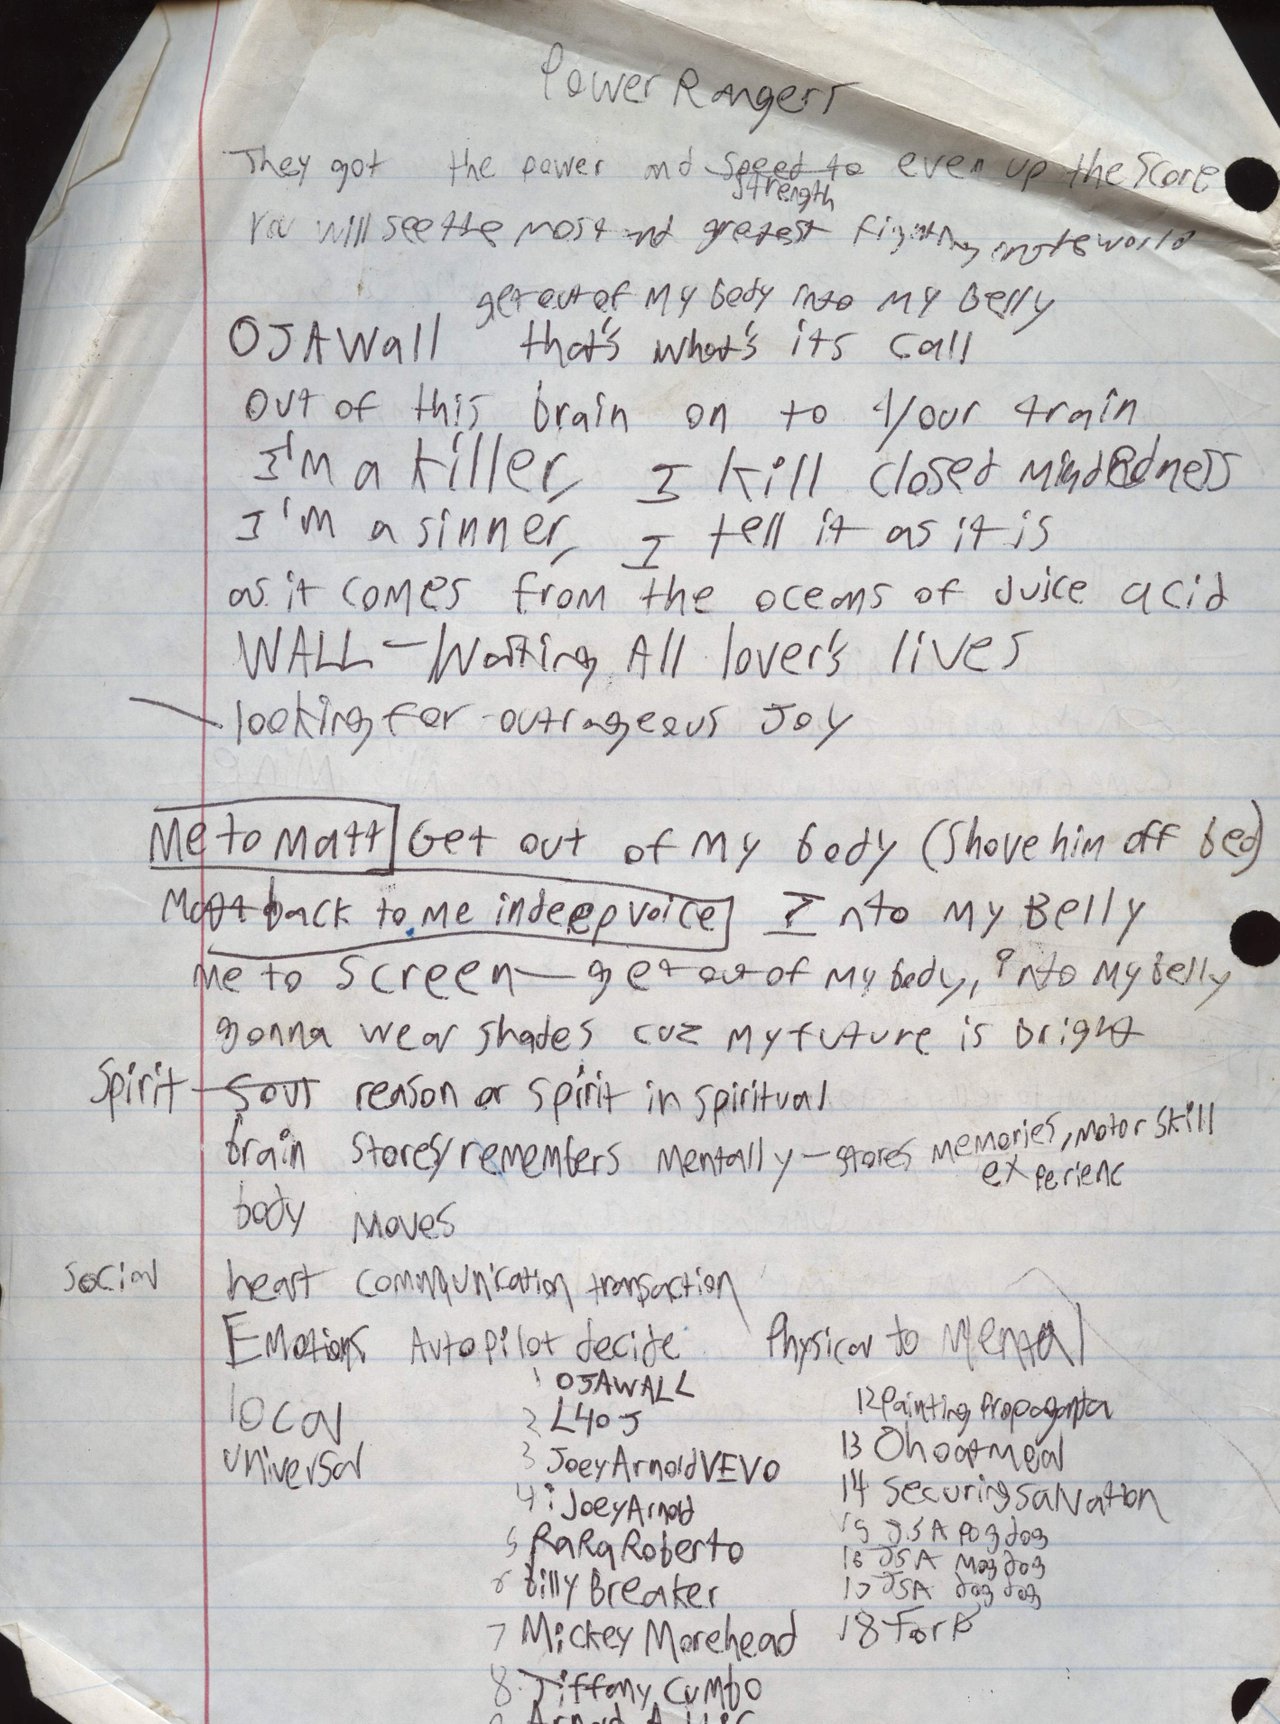 Power Rangers
They got the power and speed to even up the score
strength
You will see the most and greatest fighting in the world
get out of my body into my belly
OJAWall that's what's its call
out of this brain on to your train
I'm a killer, I kill closed mindedness
I'm a sinner, I tell it as it is
as it comes from the oceans of juice acid
WALL - Waiting All lover's lives
looking for outrageous Joy
Me to Matt Get out of my body (shove him off bed)
Matt back to me in deep voice Into my Belly
me to screen - get out of my body, into my belly
gonna wear shades cuz my future is bright
Spirit - soul reason or spirit in spiritual
brain stores/remembers mentally - stores memories, motor skill
experienc
body moves
Social heart communication transaction
Emotions Autopilot decide Physical to Mental
local
universal
1 OJAWALL
2 L4OJ
3 JoeyArnoldVEVO
4 iJoeyArnold
5 RaRaRoberto
6 Billy Breaker
7 Mickey Morehead
8 Tiffany Cumbo
9 Arnold
12 Painting Propaganta
13 Oh oatmeal
14 securing salvation
15 JSA pog dog
16 JSA mog dog
17 JSA dog dog
18